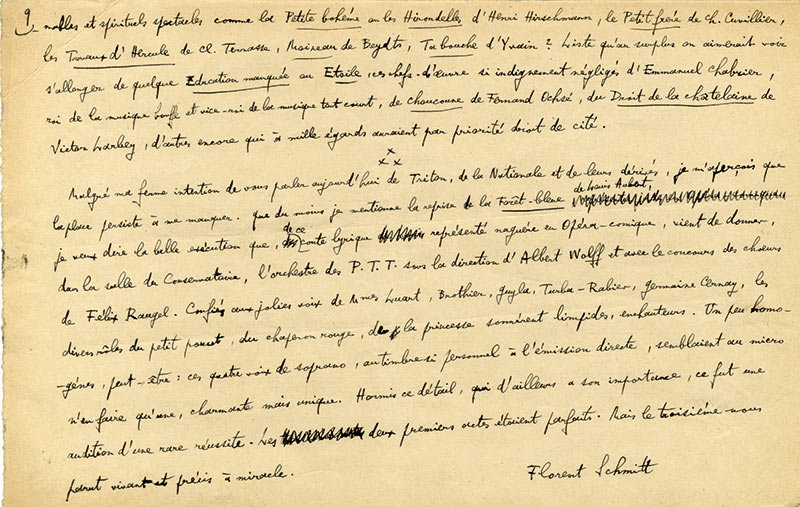 9
nobles et spirituels spectacles comme la Petite bohême ou les Hirondelles d'Henri Hirschmann, le Petit frère de Ch. Cuvillier,
les Travaux d'Hercule de Cl. Terrasse, Moineau de Beydts, Ta bouche d'Yvain ? Liste qu'au surplus on aimerait voir
s'allonger de quelque Education manquée ou Etoile, ces chefs-d'œuvre si indignement négligés d'Emmanuel Chabrier,
roi de la musique bouffe et vice-roi de la musique tout court, de Choucoune de Fernand Ochsé, du Droit de la châtelaine de
Victor Larbey, d'autres encore qui à mille égards auraient par priorité droit de cité.
x
x x
Malgré ma ferme intention de vous parler aujourd'hui de Triton, de la Nationale et de leurs dérivés, je m'aperçois que
la place persiste à me manquer. Que du moins je mentionne la reprise de la Forêt-bleue de Louis Aubert,
je veux dire la belle exécution que, de ce conte lyrique représenté naguère en Opéra-comique, vient de donner,
dans la salle du Conservatoire, l'orchestre des P.T.T. sous la direction d'Albert Wolff et avec le concours des chœurs
de Félix Raugel. Confiés aux jolies voix de Mmes Luart, Brothier, Guyla, Turba-Rabier, Germaine Cernay, les
divers rôles du petit poucet, du chaperon rouge, de la princesse sonnèrent limpides, enchanteurs. Un peu homo-
-gènes, peut-être : ces quatre voix de soprano, au timbre si personnel à l'émission directe, semblaient au micro
n'en faire qu'une, charmante mais unique. Hormis ce détail, qui d'ailleurs a son importance, ce fut une
audition d'une rare réussite. Les deux premiers actes étaient parfaits. Mais le troisième nous
parut vivant et précis à miracle.
Florent Schmitt